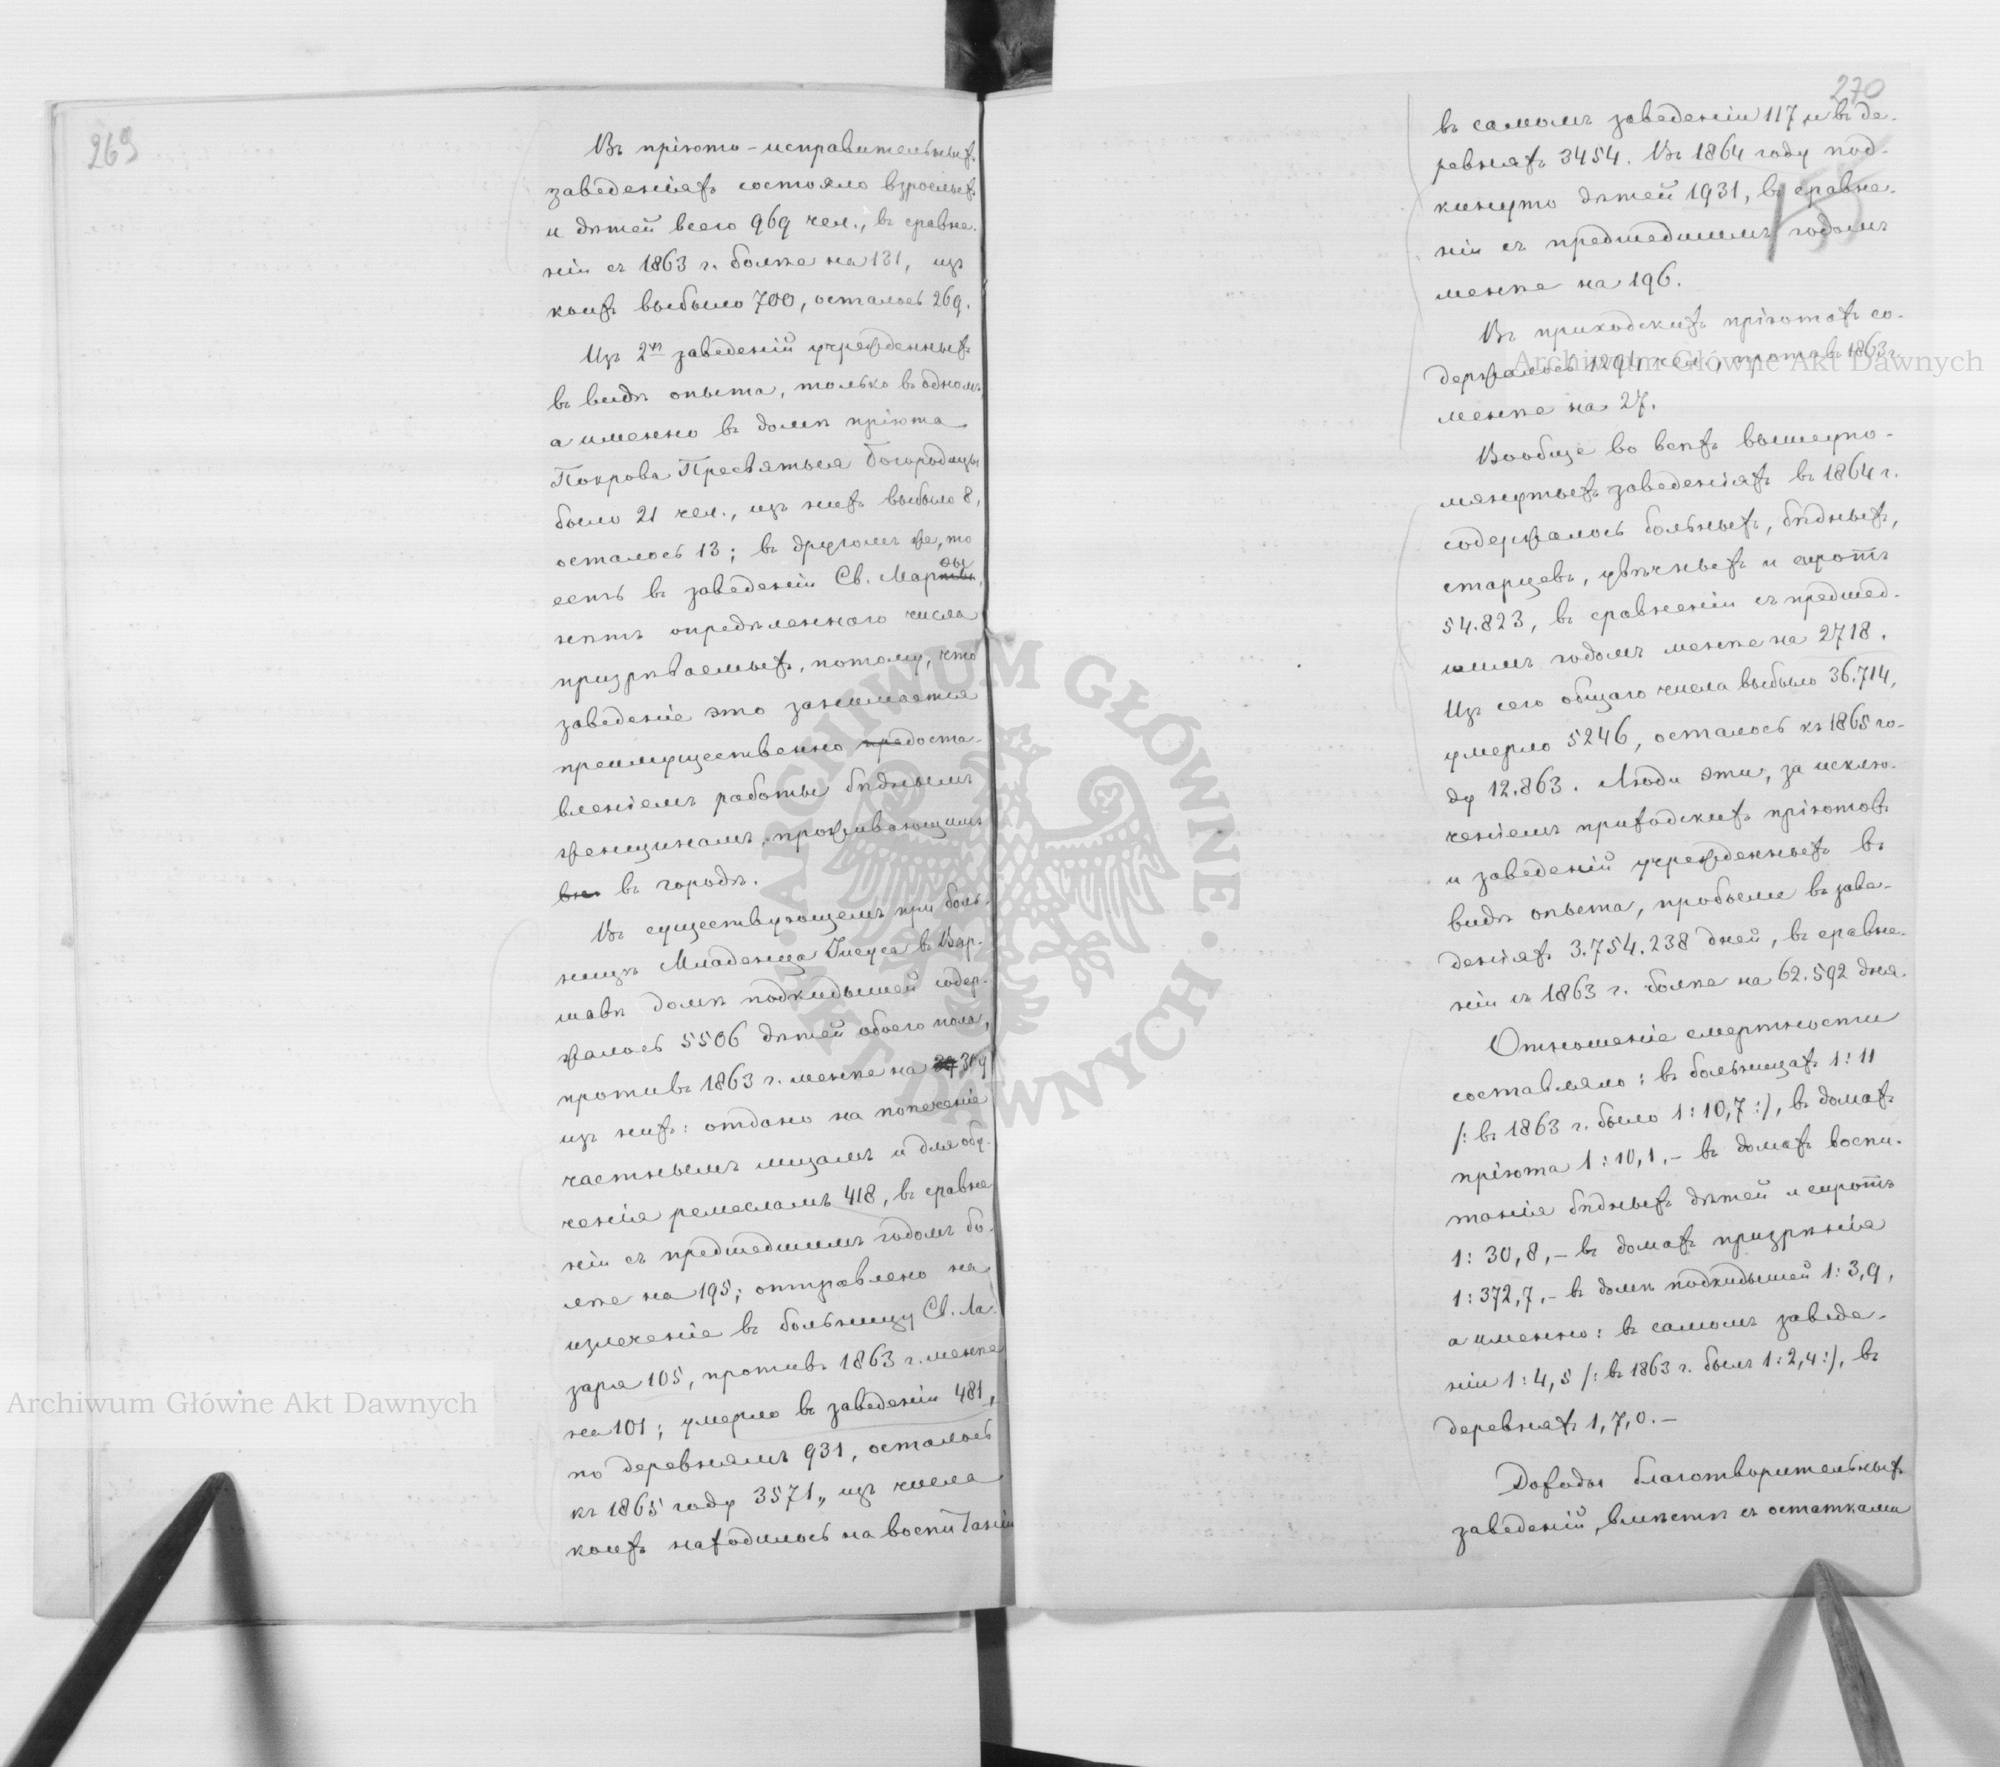 269
Въ пріюто-исправительныхъ
заведеніяхъ состояло взрослыхъ
и дѣтей всего 969 чел., въ сравне-
ніи съ 1863 г. болѣе на 131, изъ
коихъ выбыло 700, осталось 269.
Изъ 2хъ заведеній учрежденныхъ
въ видѣ опыта, только въ одномъ,
а именно въ домѣ пріюта
Покрова Пресвятыя Богородицы
было 21 чел., изъ нихъ выбыло 8,
осталось 13; въ другомъ же, то
есть въ заведеніи Св. Марѳы
нѣтъ опредѣленнаго числа
призрѣваемыхъ, потому, что
заведеніе это занимается
преимущественно предоста-
вленіемъ работы бѣднымъ
женщинамъ, проживающимъ
въ городѣ.
Въ существующемъ при боль-
ницѣ Младенца Іисуса в Вар-
шавѣ домѣ подкидышей содер-
жалось 5506 дѣтей обоего пола,
противъ 1863 г. менѣе на 309
изъ нихъ: отдано на попеченіе
частнымъ лицамъ и для обу-
ченія ремесламъ 418, въ сравне
ніи съ предшедшимъ годомъ бо-
лѣе на 195; отправлено на
излеченіе въ больницу Св. Ла-
заря 105, противъ 1863 г. менѣе
на 101; умерло въ заведеніи 481,
по деревнямъ 931, осталось
къ 1865 году 3571, изъ числа
коихъ находилось на воспитаніи
270
въ самомъ заведеніи 117 и въ де-
ревняхъ 3454. Въ 1864 году под-
кинуто дѣтей 1931, въ сравне-
ніи съ предшедшимъ годомъ
менѣе на 196.
Въ приходскихъ пріютахъ со-
держалось 1294 чел., противъ 1863 г.
менѣе на 27.
Вообще во всѣхъ вышеупо-
мянутыхъ заведеніяхъ въ 1864 г.
содержалось больныхъ, бѣдныхъ,
старцевъ, увѣчныхъ и сиротъ
54.823, въ сравненіи съ предшед-
шимъ годомъ менѣе на 2718.
Изъ сего общаго числа выбыло 36.714,
умерло 5246, осталось къ 1865 го-
ду 12.863. Люди эти, за исклю-
ченіемъ приходскихъ пріютовъ
и заведеній учрежденныхъ въ
видѣ опыта, пробыли въ заве-
деніяхъ 3.754.238 дней, въ сравне-
ніи съ 1863 г. болѣе на 62.592 дня.
Отношеніе смертности
составляло: въ больницахъ 1:11
/: въ 1863 г. было 1:10,7 :/, въ домахъ
пріюта 1:10,1,- въ домахъ воспи-
танія бѣдныхъ дѣтей и сиротъ
1:30,8,- въ домахъ призрѣнія
1:372,7,- въ домѣ подкидышей 1:3,9,
а именно: въ самомъ заведе-
ніи 1:4,5 /: въ 1863 г. былъ 1:2,4 :/, въ
деревняхъ 1,7,0.-
Доходы благотворительныхъ
заведеній, вмѣстѣ съ остатками
Archiwum Główne Akt Dawnych
Archiwum Główne Akt Dawnych
ARCHIWUM GŁÓWNE AKT DAWNYCH